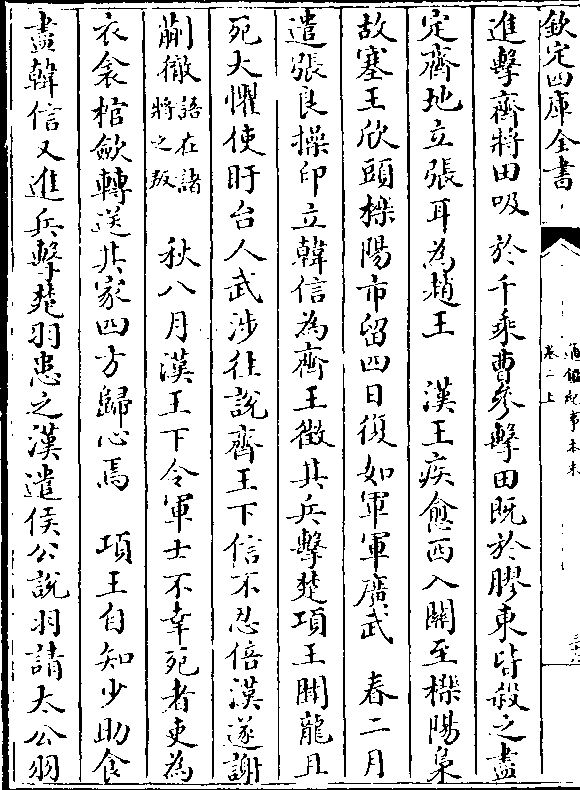 欽定四庫全書
通鑑紀事本末
卷二上
進擊齊將田吸於千乘曹參擊田既於膠東皆殺之盡
定齊地立張耳為趙王　漢王疾愈西入關至櫟陽梟
故塞王欣頭櫟陽市留四日復如軍軍廣武　春二月
遣張良操印立韓信為齊王徵其兵擊楚項王聞龍且
死大懼使盱台人武涉往說齊王下信不忍倍漢遂謝
蒯徹語在諸將之叛　秋八月漢王下令軍士不幸死者吏為
衣衾棺歛轉送其家四方歸心焉　項王自知少助食
盡韓信又進兵擊楚羽患之漢遣侯公說羽請太公羽